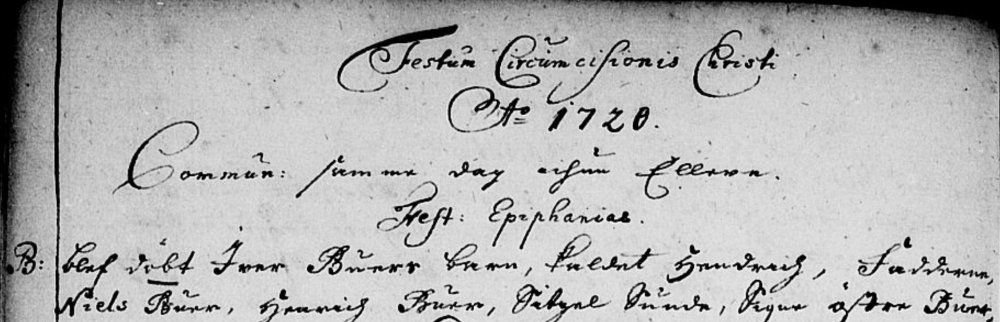 Festum Circumcisionis Christi
Ao 1720.
Commun: samme dag ichun Elleve.
Fest: Epiphanias.
B: blef döbt Iver Buers barn, kaldet Hendrich, Fadderne,
Niels Buer, Henrich Buer, Sitzel Sunde, Signe östre Buer,